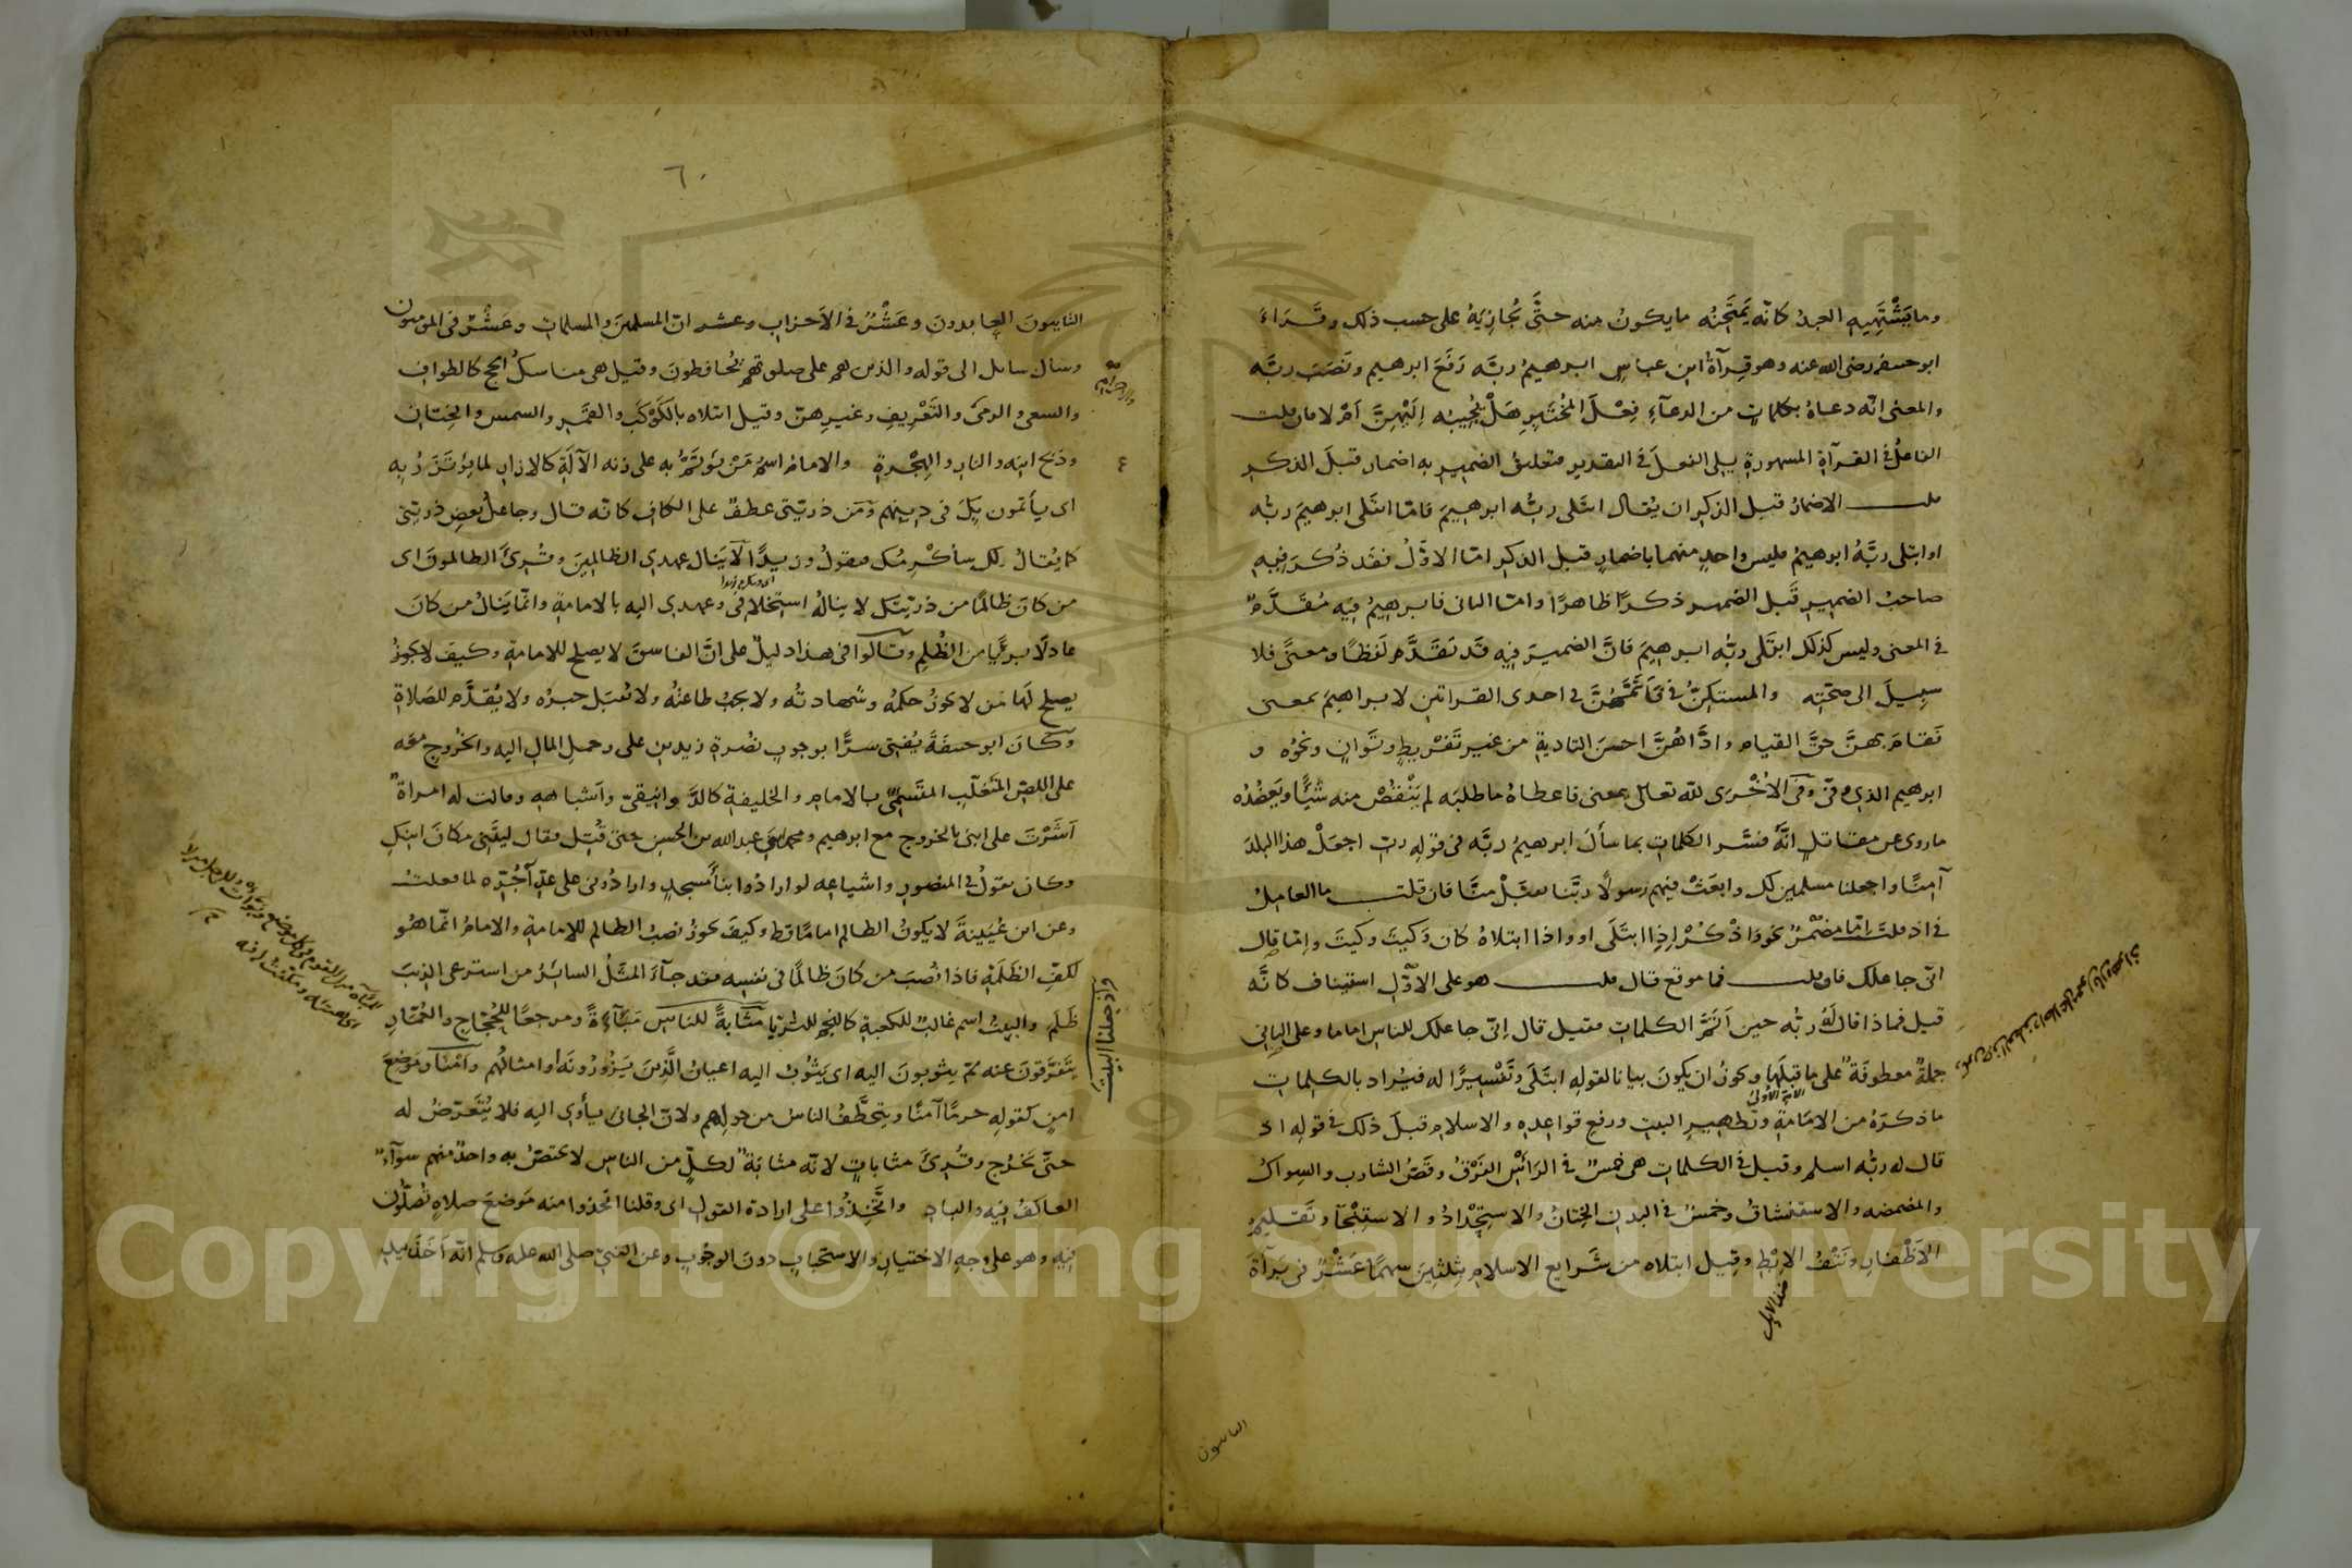 وما يَشْتَهِيهِ العبدُ كانّه يَمْتَحِنُه ما يكونُ منه حتَّى يُجازِيَهُ على حسب ذلك وقَرَاءَ
ابو حنيفة رضى الله عنه وهو قِرآةُ ابن عباسٍ ابرهيمُ ربَّه رَفَعَ ابرهيم ونَصَبَ ربَّه
والمعنى انّه دعاهُ بكلماتٍ من الدعآءِ فِعْلَ المُخْتَبِرِ هَلْ يُجِيبُه اِلَيْهِنَّ اَمْ لا فان قلت
الفاعلُ فى القرآةِ المشهورةِ يلى الفعلَ فى التقدير فتعليقُ الضمير به اضمار قبلَ الذكرِ
قلت الاضمارُ قبل الذكرِ ان يُقال ابتَلى ربُّه ابرهيمَ فامّا ابتَلى ابرهيمَ ربُّه
او ابتلى ربَّهُ ابرهيمُ فليس واحدٍ منهما باضمارٍ قبل الذكرِ امّا الاوّلُ فقد ذُكرَ فيهِ
صاحبُ الضميرِ قَبل الضمير ذكرًا ظاهرًا وامّا الثانى فابرهيمُ فيه مُقَدَّمٌ
فى المعنى وليس كذلك ابتَلى ربُّه ابرهيمَ فانّ الضميرَ فيه قد تَقَدَّم لَفظًا ومعنًى فلا
سبيلَ الى صحّتِه والمستكِنُّ فى فَاَتَمَّهُنَّ فى احدى القراتين لابراهيمَ بمعنى
فَقامَ بهنَّ حقَّ القيام وادّاهُنَّ احسنَ التاديةِ من غير تَفْريطٍ وتَوانٍ ونحوُه و
ابرهيم الذى وفّى وفى الاُخْرَى للّه تعالى بمعنى فاعطاهُ ما طلبَه لم يَنْقُصْ منه شَيْئًا ويَعضُدُه
ما روى عن مقاتلٍ انّه فسَّر الكلماتِ بما سأَلَ ابرهيمُ ربَّه فى قولِهِ ربِّ اجعَلْ هذا البلدَ
آمِنًا واجعلنا مسلمين لك وابعَثْ فيهم رسولًا ربَّنا تقبَّلْ منّا فان قلت ما العامِلُ
فى اذ قلت اِمّا مضْمَرٌ نحو وَاذْكُرْ اِذِ ابتَلَى او واذا ابتلاهُ كان كَيْتَ وكيتَ وامّا قال
انّى جاعلك فان قلت فما موقع قال قلت هو على الاوّلِ استيناف كانّه
قيل فماذا قال لَهُ ربُّه حين اَتَمَّ الكلماتِ فقيل قال اِنّى جاعلك للناس اماما وعلى الثانى
جملةٌ معطوفَةٌ على ما قبلَها ويجوزُ ان يكونَ بيانا لقولِهِ ابتَلَى وتَفْسِيرًا له فيُراد بالكلماتِ
ما ذكرَهُ من الامامَةِ وتَطهيرِ البيتِ ورفعِ قواعدِه والاسلام قبلَ ذلك فى قولِهِ اذ
قال له ربُّه اسلم وقيل فى الكلماتِ هى خمسٌ فى الرَاْسِ الفَرْقُ وقَصُّ الشاربِ والسِواكُ
والمضمضه والاستنشاقُ وخمسٌ فى البدن الخِتانُ والاستِحْدادُ والاستِنْجآ وتَقليمُ
الاَظْفارِ ونَتْفُ الاِبْطِ وقيل ابتلاه من شَرايع الاسلام بثلثينَ سهمًا عَشْرٌ فى بَرآةَ
التايبون
٦٠
التايبونَ العابدونَ وعَشْرٌ فى الاَحزاب وعشر انّ المسلمينَ والمسلمات وعَشْرٌ فى المؤمنون
وسال سائل الى قوله والذين هم على صلوتهم يُحافظونَ وقيل هى مناسكُ الحج كالطوافِ
والسعى والرمىَ والتَعْرِيفِ وغيرِهنّ وقيل ابتلاه بالكَوْكَبِ والقمَرِ والشمس والخِتانِ
وذبح ابنِه والنارِ والهِجْرةِ والامامُ اسمُ مَنْ يُؤتَمُّ به على زنه الآلَةِ كالازارِ لما يُؤتَزَرُ بِه
اى يأتمون بِكَ فى دينهم ومَن ذريّتى عطفٌ على الكاف كانّه قال وجاعلُ بعضِ ذريّتى
كما يُقالُ لك سأكْرِمُك فتقولُ وزيدًا لا يَنال عهدى الظالمِينَ وقُرِئَ الظالمونَ اى
من كانَ ظالمًا من ذريّتِكَ لا ينالُهُ استخلافى وعهدى اليه بالامامةِ وانّما يَنالُ من كانَ
عادلًا بريًّا من الظُّلمِ وقالوا فى هذا دليلٌ على انَّ الفاسقَ لا يصلح للامامةِ وكيفَ لا يجوزُ
يصلح لَها مَن لا يجوزُ حكمُه وشهادتُه ولا يجبُ طاعتُه ولا يُقبَل خبرُه ولا يُقدَّم للصلاةِ
وكانَ ابو حنيفَةَ يُفتى سرًّا بوجوبِ نُصْرةِ زيد بن على وحملِ المالِ اليه والخروجِ معَه
على اللصّ المتغلّبِ المتَسمّى بالامامِ والخليفةِ كالدَوانيقىّ واَشباهِهِ وقالت له امراةٌ
اَشَرْتَ على ابنى بالخروجِ مع ابرهيم ومحمد ابنَى عبدالله بن الحسن حتى قُتِل فقال ليتَنى مكانَ ابنِكِ
وكان يقولُ فى المنصورِ واشياعِه لو ارادُوا بنآءَ مسجدٍ وارادُونى على عدِّ آجُرِّه لما فعلتُ
وعن ابن عُيَيْنةَ لا يكونُ الظالم امامًا قط وكيفَ يجوزُ نصبُ الظالم للامامةِ والامامُ انّما هُو
لكفِّ الظَلَمَةِ فاذا نُصبَ من كانَ ظالمًا فى نفسِه فقد جآءَ المثلُ السائرُ من استرعى الذئبَ
ظَلَم والبيتُ اسم غالبٌ للكعبةِ كالنجم للثريّا مثابةً للناسِ مَبآءَةً ومرجعًا للحُجّاجِ والعُمّارِ
يَتَفَرّقونَ عنه ثم يثوبونَ اليه اى يَثوبُ اليه اعيانُ الَّذِينَ يَزُورُونَه او امثالُهم واَمْنًا وموضعَ
امنٍ كقولِهِ حرمًا آمنًا ويُتخطَّفُ الناسُ من حولِهم ولانّ الجانى يأوى اليهِ فلا يُتَعرّضُ له
حتّى يَخرُج وقُرِئَ مثاباتٍ لانّه مثابَةٌ لكلٍّ من الناسِ لا يختصّ به واحدٌ منهم سوآءٌ
العاكفُ فيه والبادِ واتَّخِذُوا على ارادة القولِ اى وقلنا اتخذوا منه مَوضعَ صلاةٍ تُصلُّون
فيهِ وهو على وجهِ الاختيارِ والاستحبابِ دونَ الوجُوبِ وعن النبىّ صلى الله عليه وسلم انّه اَخَذَ بيدِ
واذ جعلنا البيت